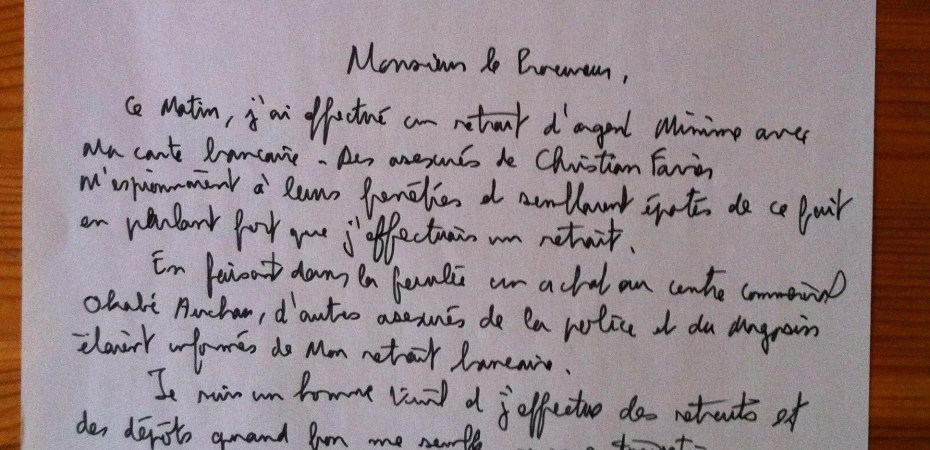 Monsieur le Procureur,
Ce Matin, j'ai effectué un retrait d'argent Minime avec
Ma carte bancaire - Des asexués de Christian Favier
M'espionnaient à leurs fenêtres et semblaient épatés de ce fait
en parlant fort que j'effectuais un retrait.
En faisant dans la foulée un achat au centre commercial
Okabé Auchan, d'autres asexués de la police et du magasin
étaient informés de Mon retrait bancaire.
Je suis un homme et j'effectue des retraits et
des dépôts quand bon me semble